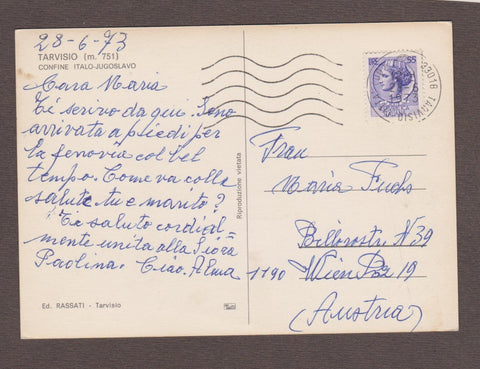 28-6-73
TARVISIO (m. 751)
CONFINE ITALO-JUGOSLAVO
Cara Maria
Ti scrivo da qui. Sono
arrivata a piedi per
la ferrovia col bel
tempo. Come va colla
salute tu e marito?
Ti saluto cordial=
mente unita alla Siora
Paolina. Ciao. Alma
Ed. RASSATI - Tarvisio
Riproduzione vietata
LIRE 55
33018 TARVISIO
Frau
Maria Fuchs
N 39
1190 Wien 19
(Austria)